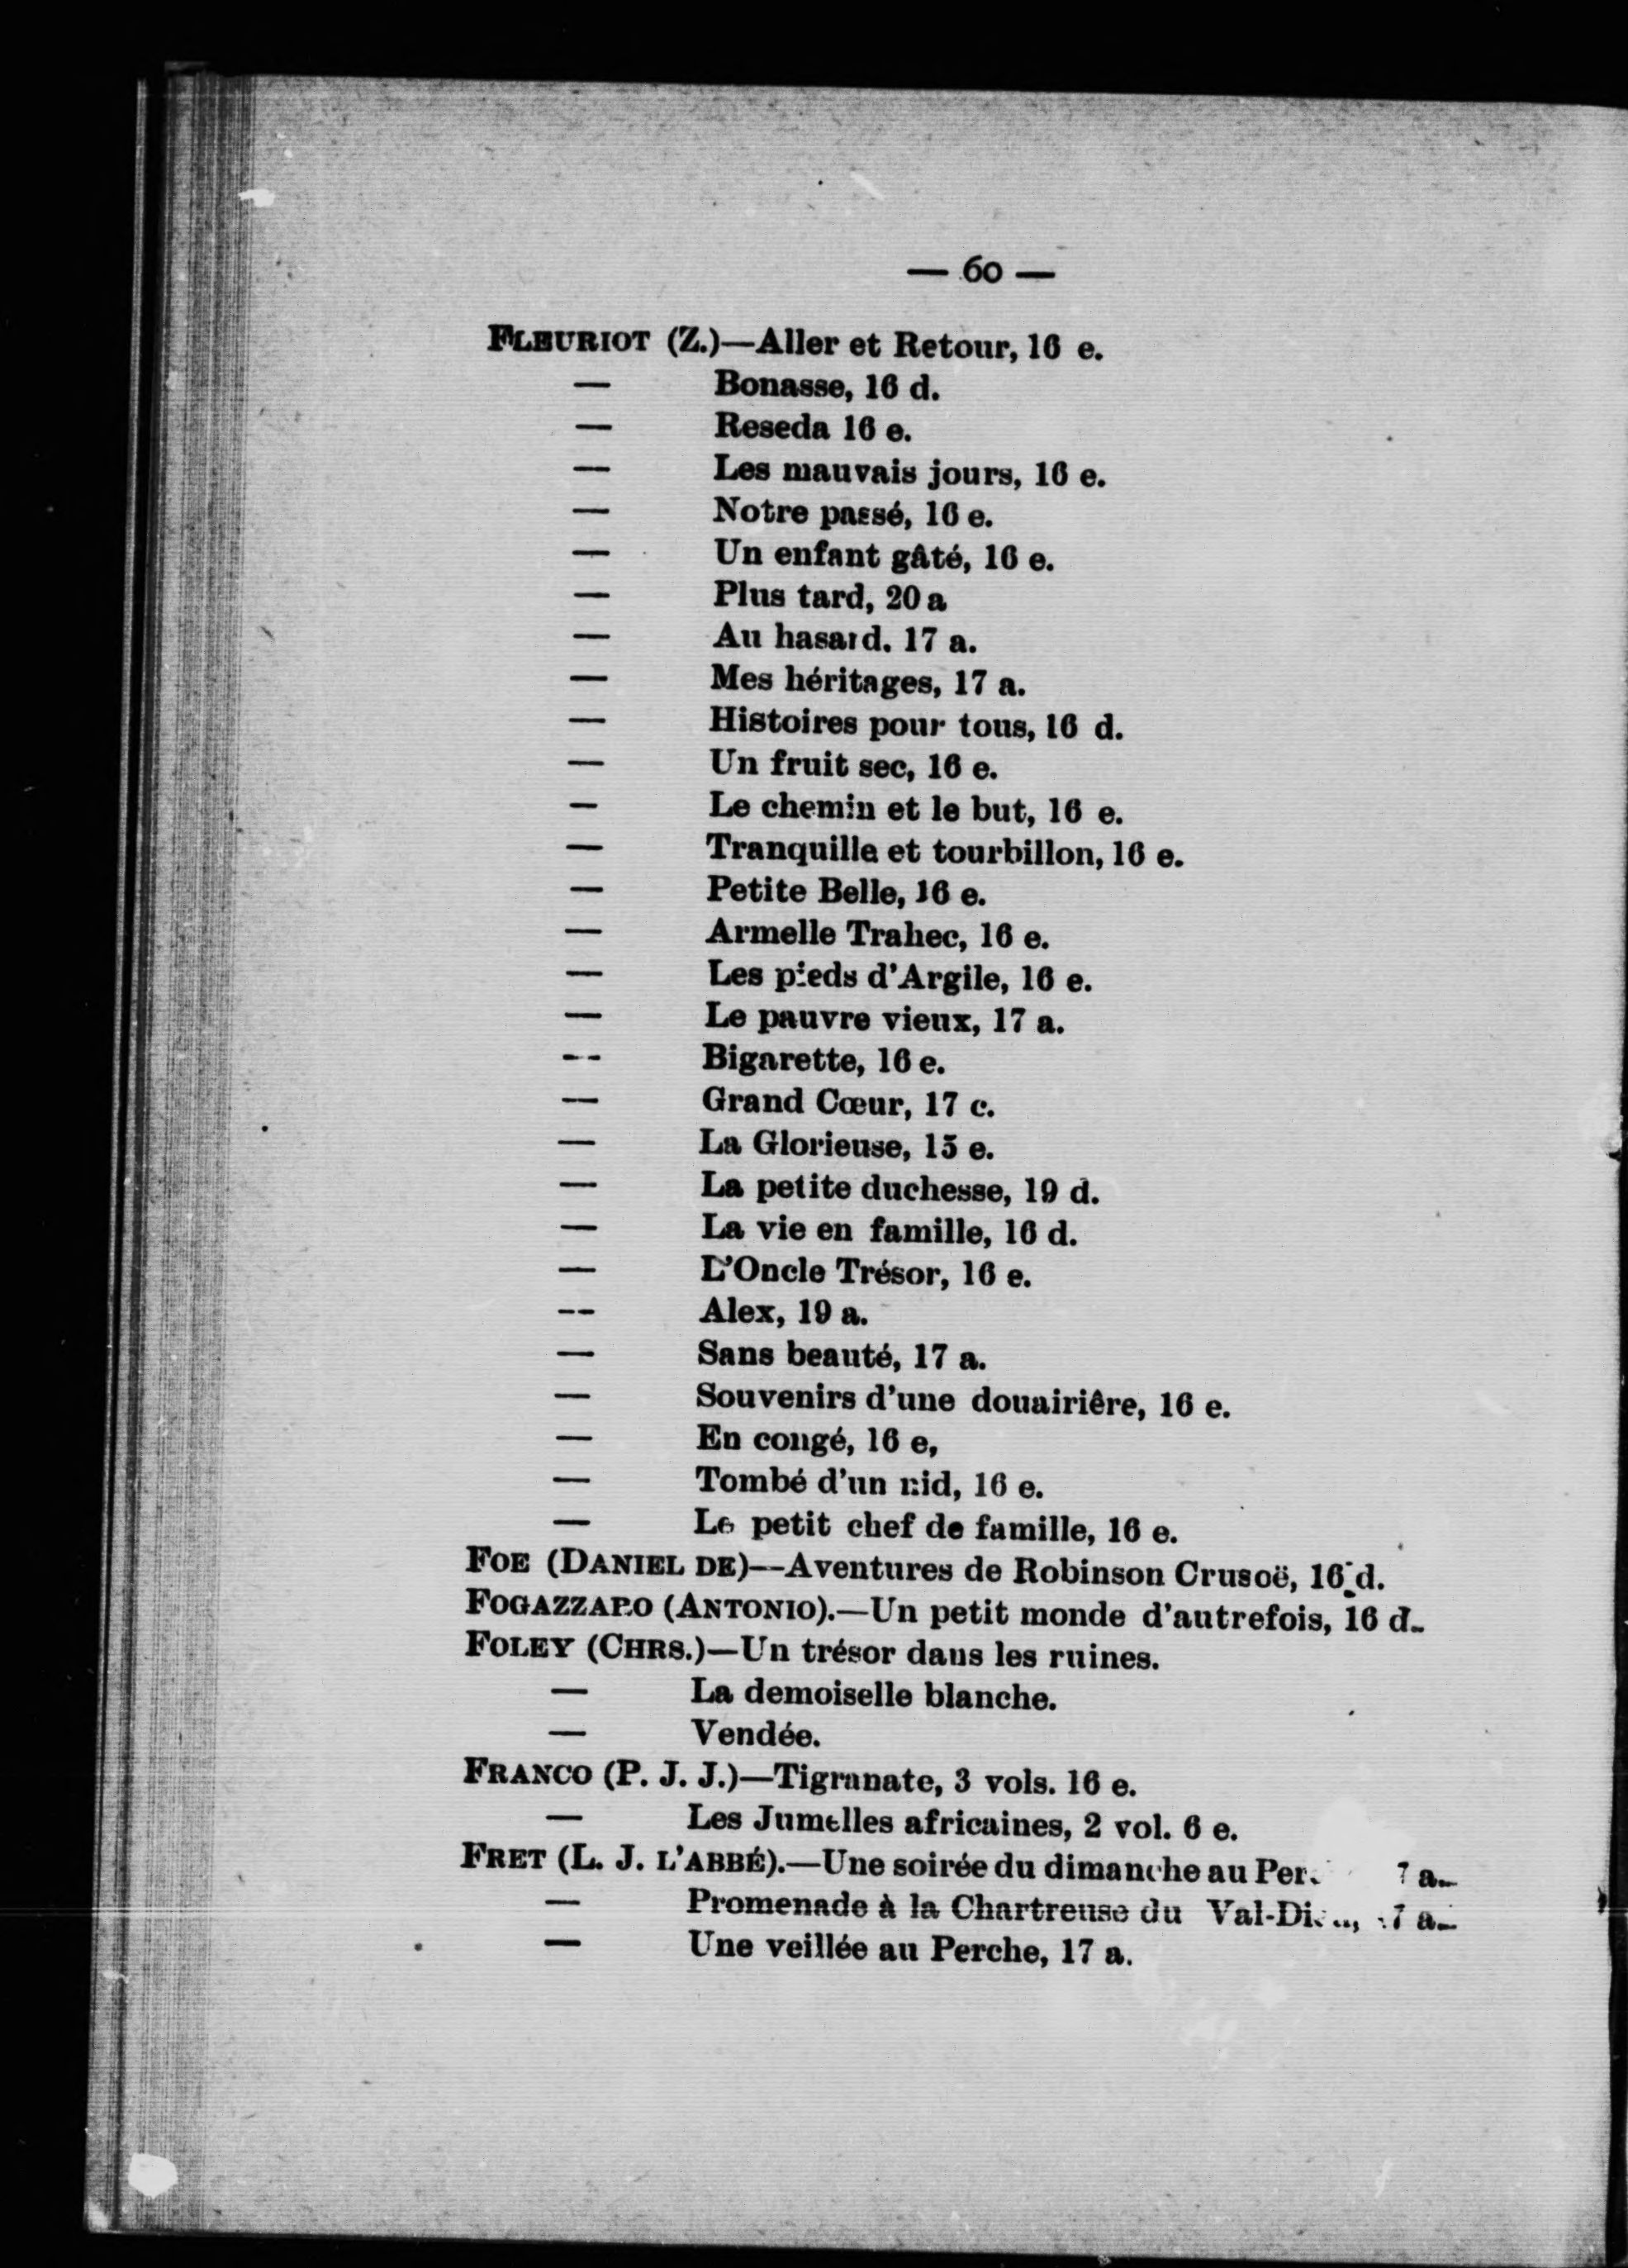 — 60 —
FLEURIOT (Z.)—Aller et Retour, 16 e.
— Bonasse, 16 d.
— Reseda 16 e.
— Les mauvais jours, 16 e.
— Notre passé, 16 e.
— Un enfant gâté, 16 e.
— Plus tard, 20 a
— Au hasard. 17 a.
— Mes héritages, 17 a.
— Histoires pour tous, 16 d.
— Un fruit sec, 16 e.
— Le chemin et le but, 16 e.
— Tranquille et tourbillon, 16 e.
— Petite Belle, 16 e.
— Armelle Trahec, 16 e.
— Les pieds d'Argile, 16 e.
— Le pauvre vieux, 17 a.
-- Bigarette, 16 e.
— Grand Cœur, 17 c.
— La Glorieuse, 15 e.
— La petite duchesse, 19 d.
— La vie en famille, 16 d.
— L'Oncle Trésor, 16 e.
-- Alex, 19 a.
— Sans beauté, 17 a.
— Souvenirs d'une douairiêre, 16 e.
— En congé, 16 e,
— Tombé d'un nid, 16 e.
— Le petit chef de famille, 16 e.
FOE (DANIEL DE)—Aventures de Robinson Crusoë, 16 d.
FOGAZZARO (ANTONIO).—Un petit monde d'autrefois, 16 d.
FOLEY (CHRS.)—Un trésor dans les ruines.
— La demoiselle blanche.
— Vendée.
FRANCO (P. J. J.)—Tigranate, 3 vols. 16 e.
— Les Jumelles africaines, 2 vol. 6 e.
FRET (L. J. L'ABBÉ).—Une soirée du dimanche au a.
— Promenade à la Chartreuse du a.
— Une veillée au Perche, 17 a.